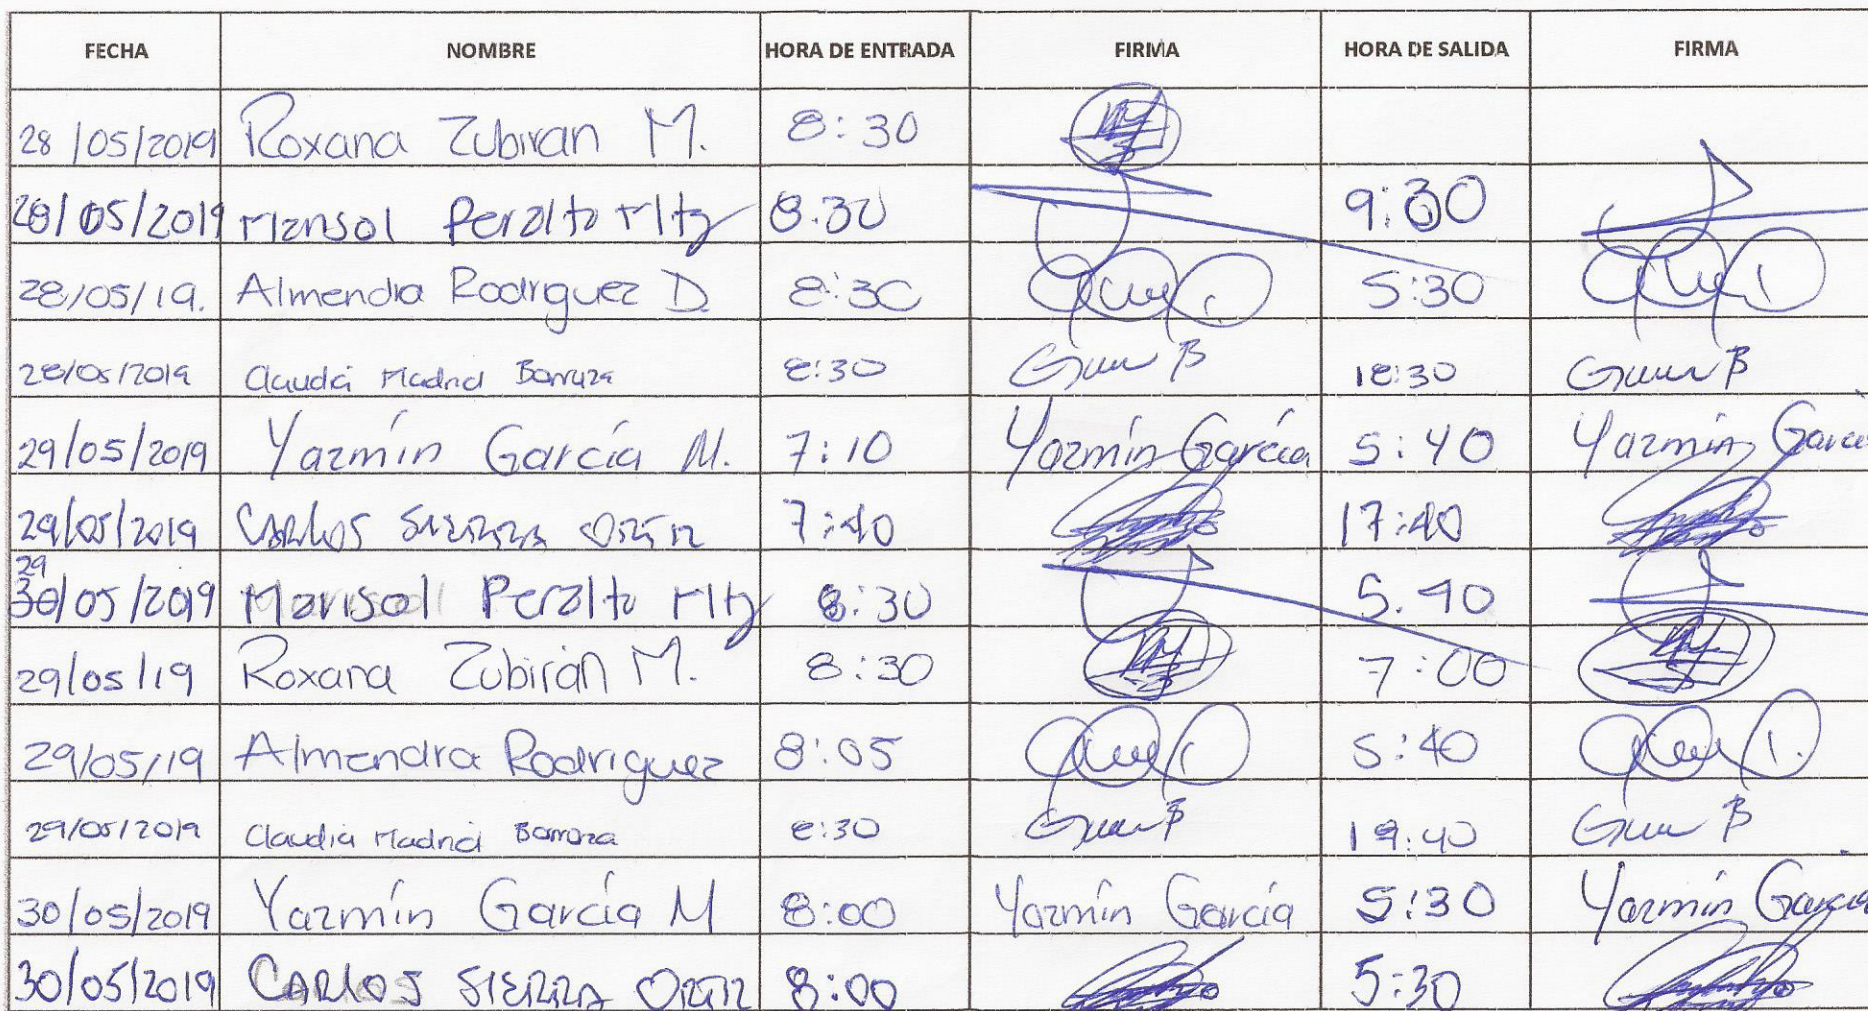 FECHA NOMBRE HORA DE ENTRADA FIRMA HORA DE SALIDA FIRMA
28/05/2019 Roxana Zubiran M. 8:30
28/05/2019 Marisol Peralta Mtz 8.30 9:30
28/05/19. Almendra Rodriguez D. 8:30 5:30
28/05/2019 Claudia Madrid Barraza 8:30 18:30
29/05/2019 Yazmín García M. 7:10 Yazmín García 5:40 Yazmín García
29/05/2019 CARLOS SIERRA ORTIZ 7:40 17:40
29
30/05/2019 Marisol Peralta Mtz 8:30 5.40
29/05/19 Roxana Zubirán M. 8:30 7:00
29/05/19 Almendra Rodriguez 8:05 5:40
29/05/2019 Claudia Madrid Barraza 8:30 19:40
30/05/2019 Yazmín García M 8:00 Yazmín García 5:30 Yazmín García
30/05/2019 CARLOS SIERRA ORTIZ 8:00 5:30